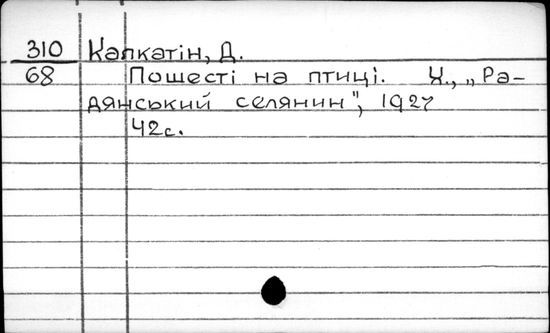 310 Калкатін, Д.
68 Пошесті на птиці. Х., „Ра-
дянський селянин", 1927
42с.